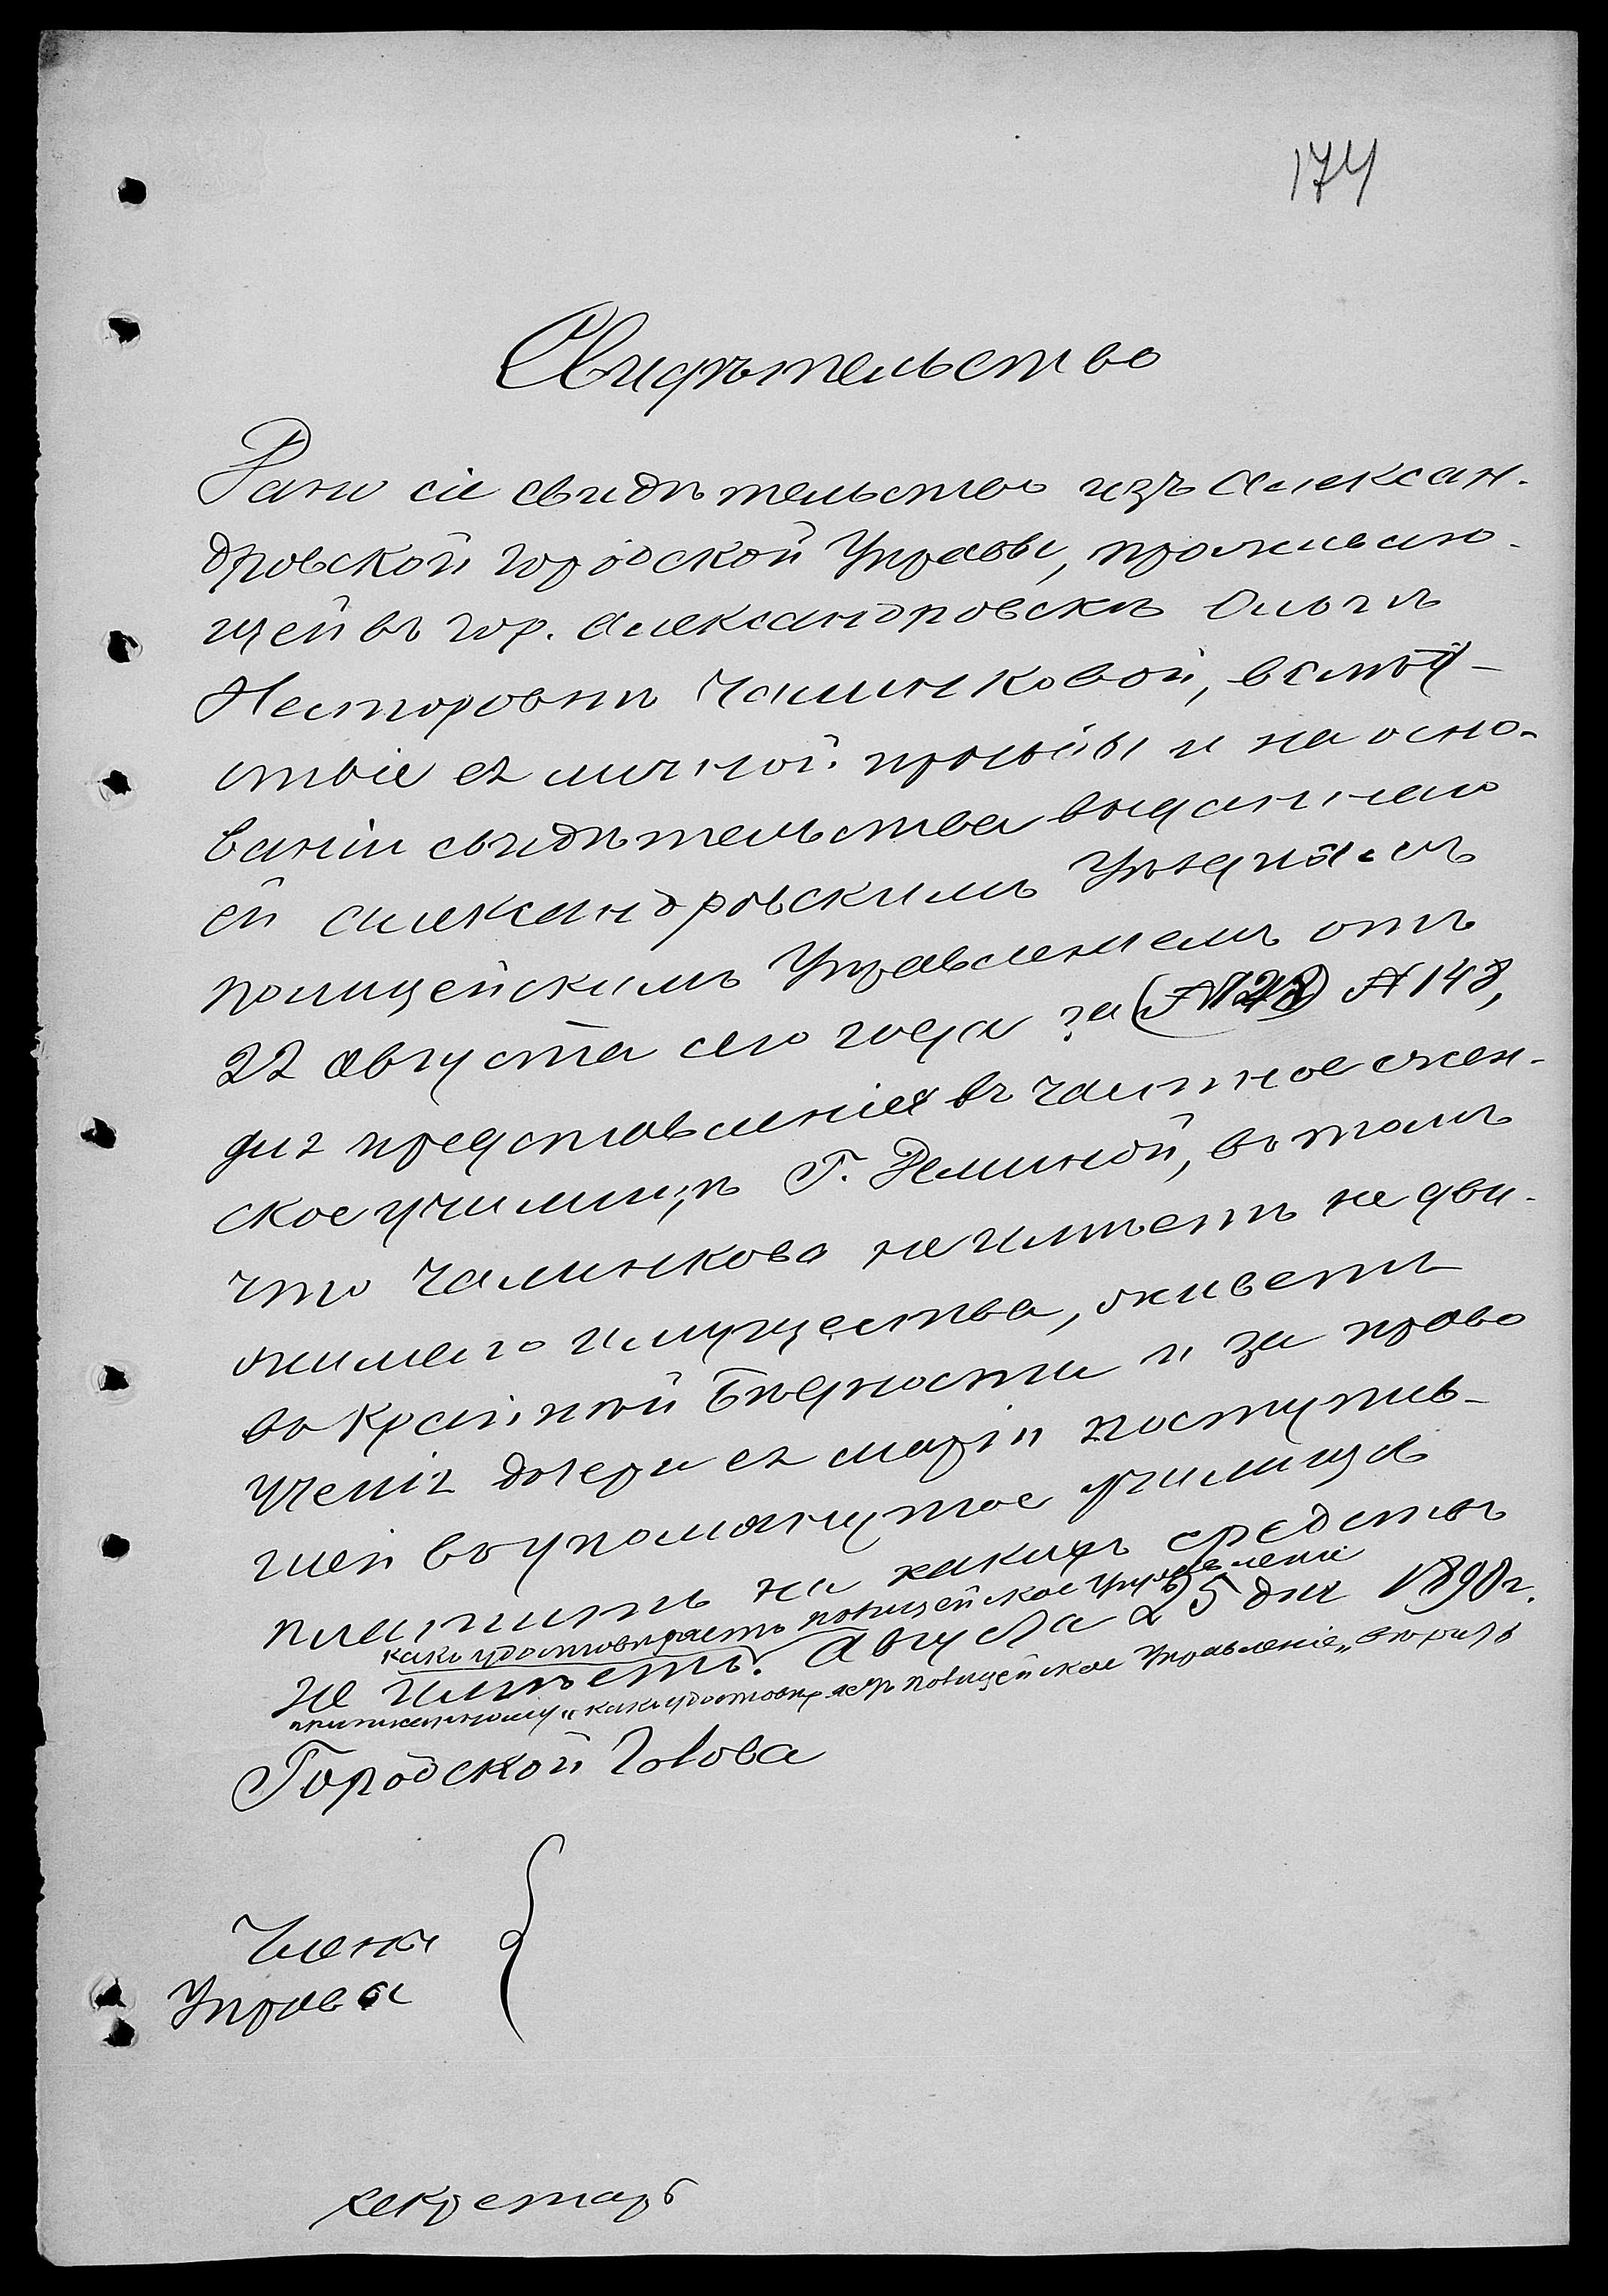 174
Свидѣтельство
Дано сіе свидѣтельство изъ Алексан-
дровской Городской Управы, прожиwаю-
щей въ гор. Александровскѣ Ольгѣ
Несторовнѣ Чалинковой, вслѣд-
ствіе ея личной просьбы и на осно-
ваніи свидѣтельства выданнаго
ей Александровскимъ Уѣзднымъ
полицейскимъ Управленіемъ отъ
22 Августа сего года за (№ 128) № 148,
для представленія въ частное жен-
ское училище Г. Деминой, въ томъ
что Чалинкова не имѣетъ недви-
жимаго имущества, живетъ
въ крайней бѣдности и за право
ученія дочери ея Маріи поступив-
шей въ упомянутое училище
платить ни какихъ средствъ
какъ удостовѣряетъ полицейское Управленіе
не имѣетъ. Августа 25 дня 1898 г.
"какъ удостовѣряетъ полицейское Управленіе" вѣрить
Городской Голова
Члены
Управы
Секретарь